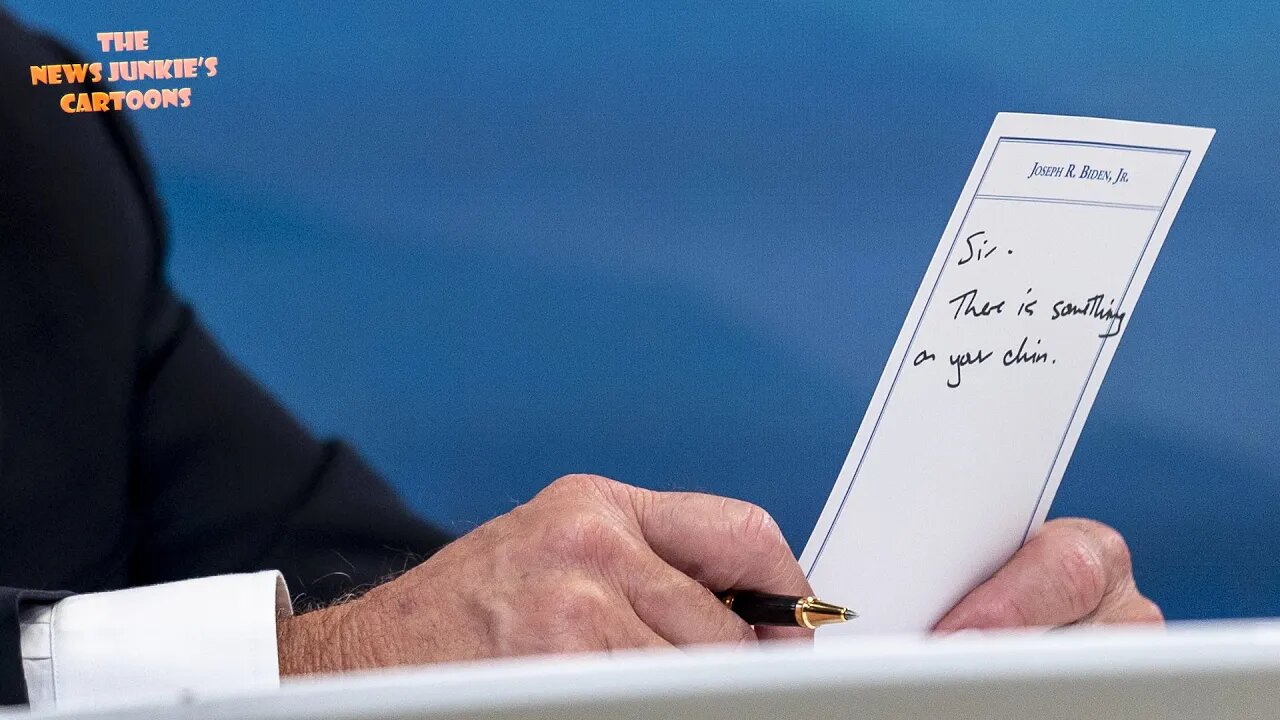 THE
NEWS JUNKIE'S
CARTOONS
JOSEPH R. BIDEN, JR.
Sir.
There is something
on your chin.